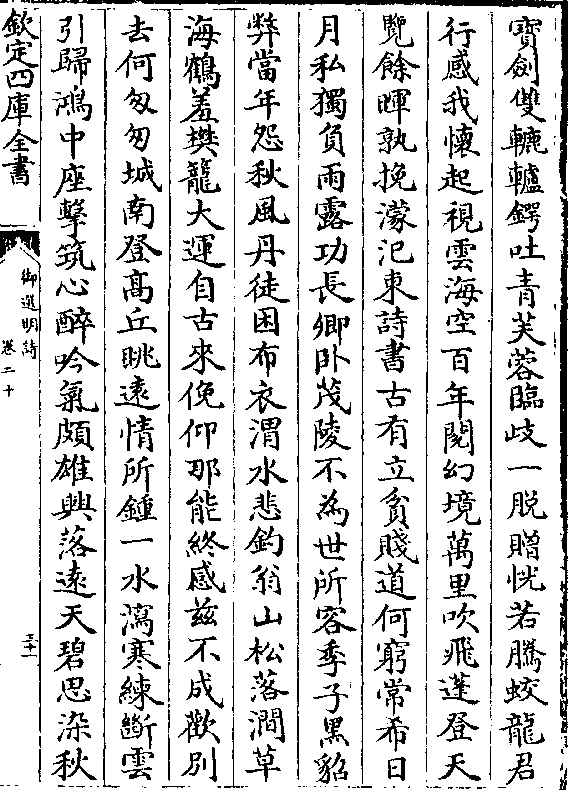 寶劍雙轆轤鍔吐青芙蓉臨歧一脱贈恍若騰蛟龍君
行感我懷起視雲海空百年閱幻境萬里吹飛蓬登天
覽餘暉孰挽濛汜東詩書古有立貧賤道何窮常希日
月私獨負雨露功長卿卧茂陵不為世所容季子黑貂
弊當年怨秋風丹徒困布衣渭水悲釣翁山松落澗草
海鶴羞樊籠大運自古來俛仰那能終感兹不成歡别
去何匆匆城南登高丘眺遠情所鍾一水瀉寒練斷雲
引歸鴻中座擊筑心醉吟氣頗雄興落遠天碧思染秋
欽定四庫全書
御選明詩
卷二十
三十一